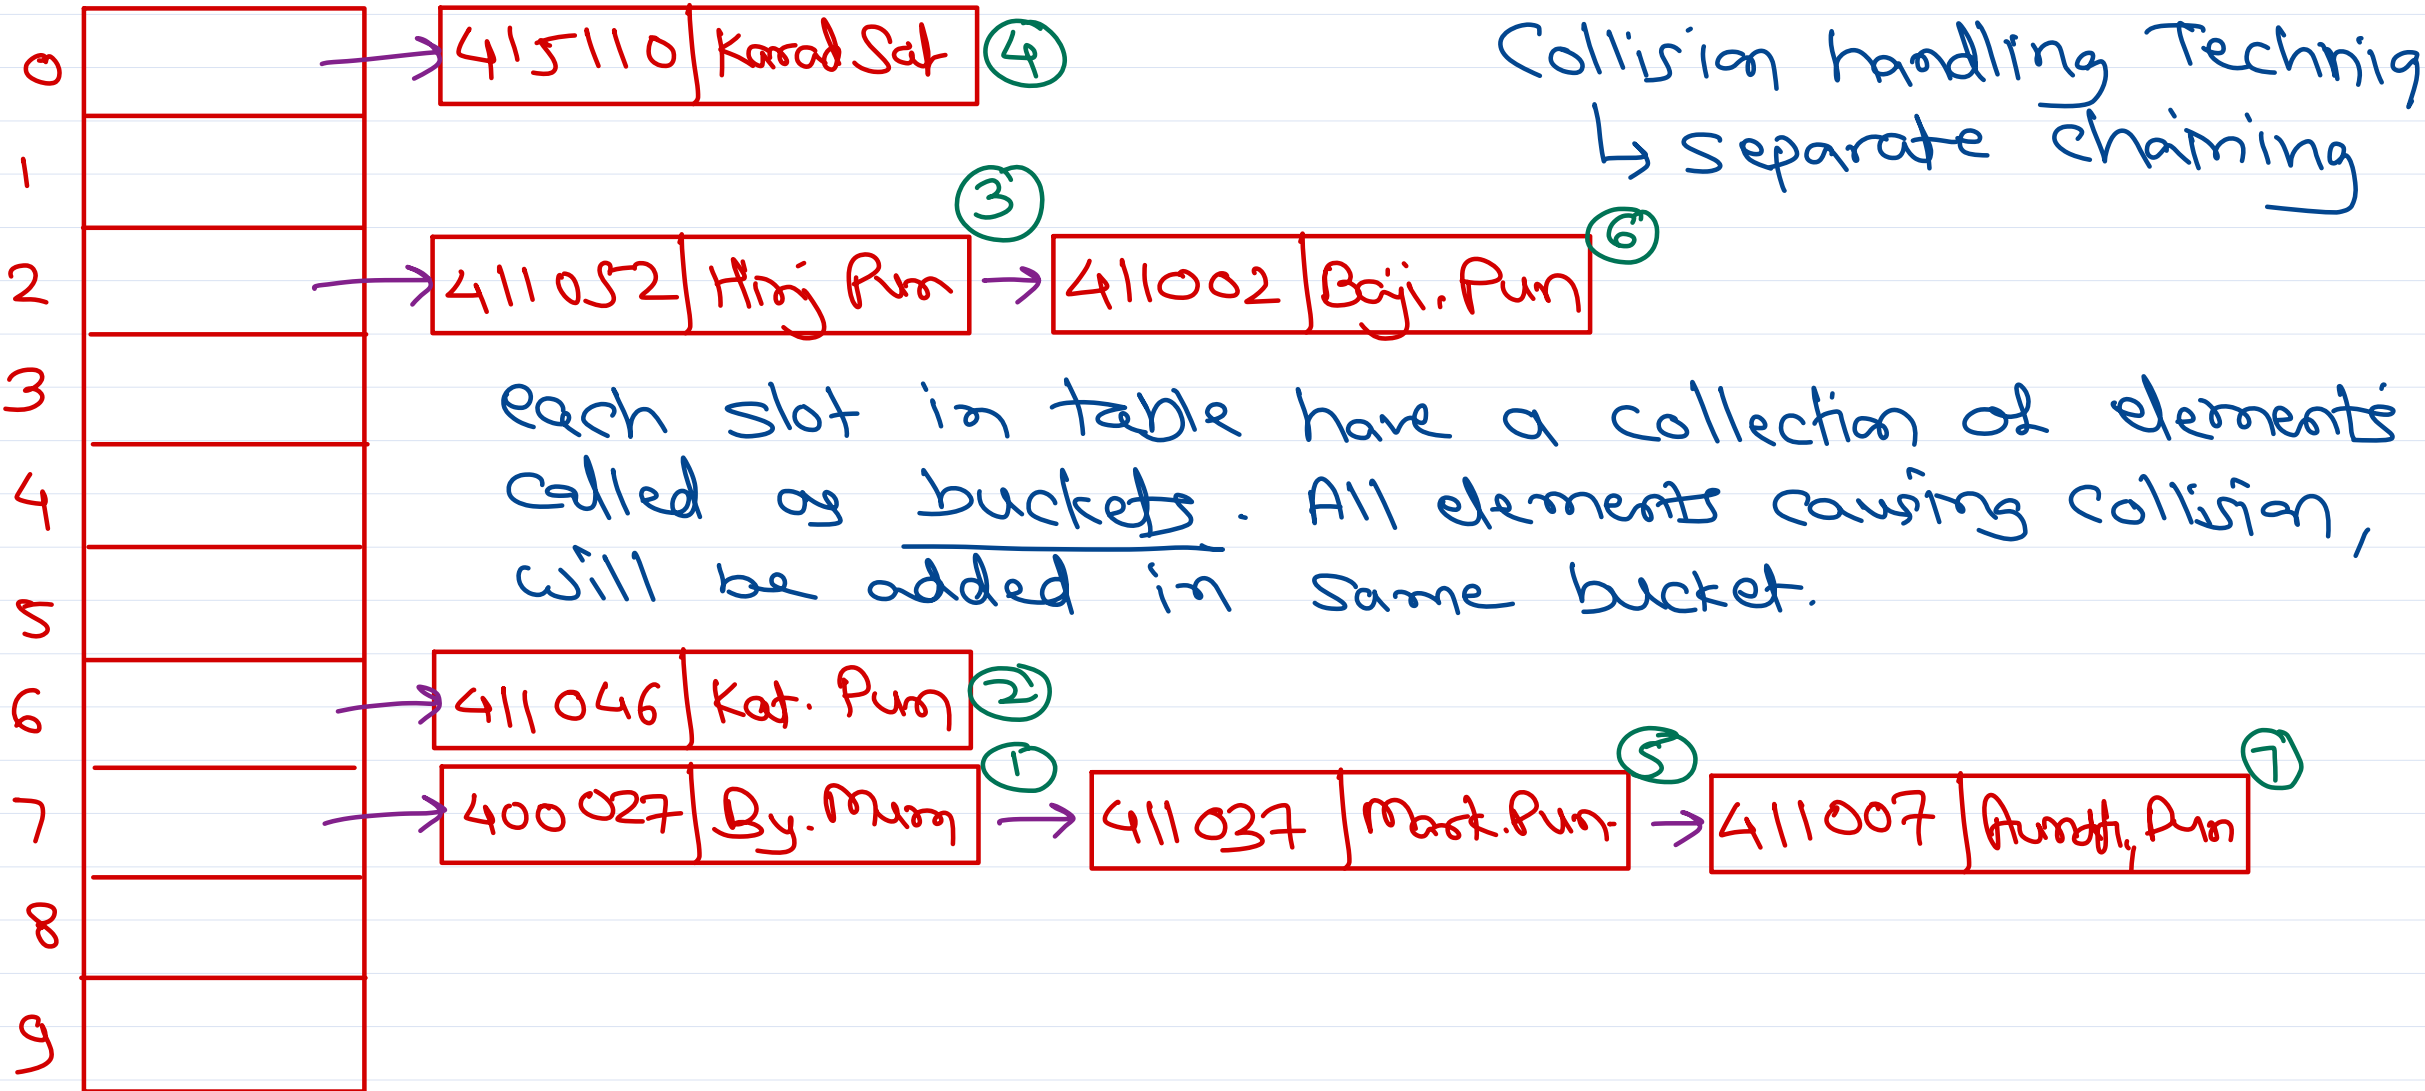 Collision handling Techniq
↳ separate chaining
0 → 415110 | Karad Sat ④
1
2 → 411052 | Hinj Pun ③ → 411002 | Baji. Pun ⑥
3
each slot in table have a collection of elements
4
called as buckets. All elements causing collision,
will be added in same bucket.
5
6 → 411046 | Kat. Pun ②
7 → 400027 | By. Mum ① → 411037 | Mark. Pun. ⑤ → 411007 | Pun ⑦
8
9